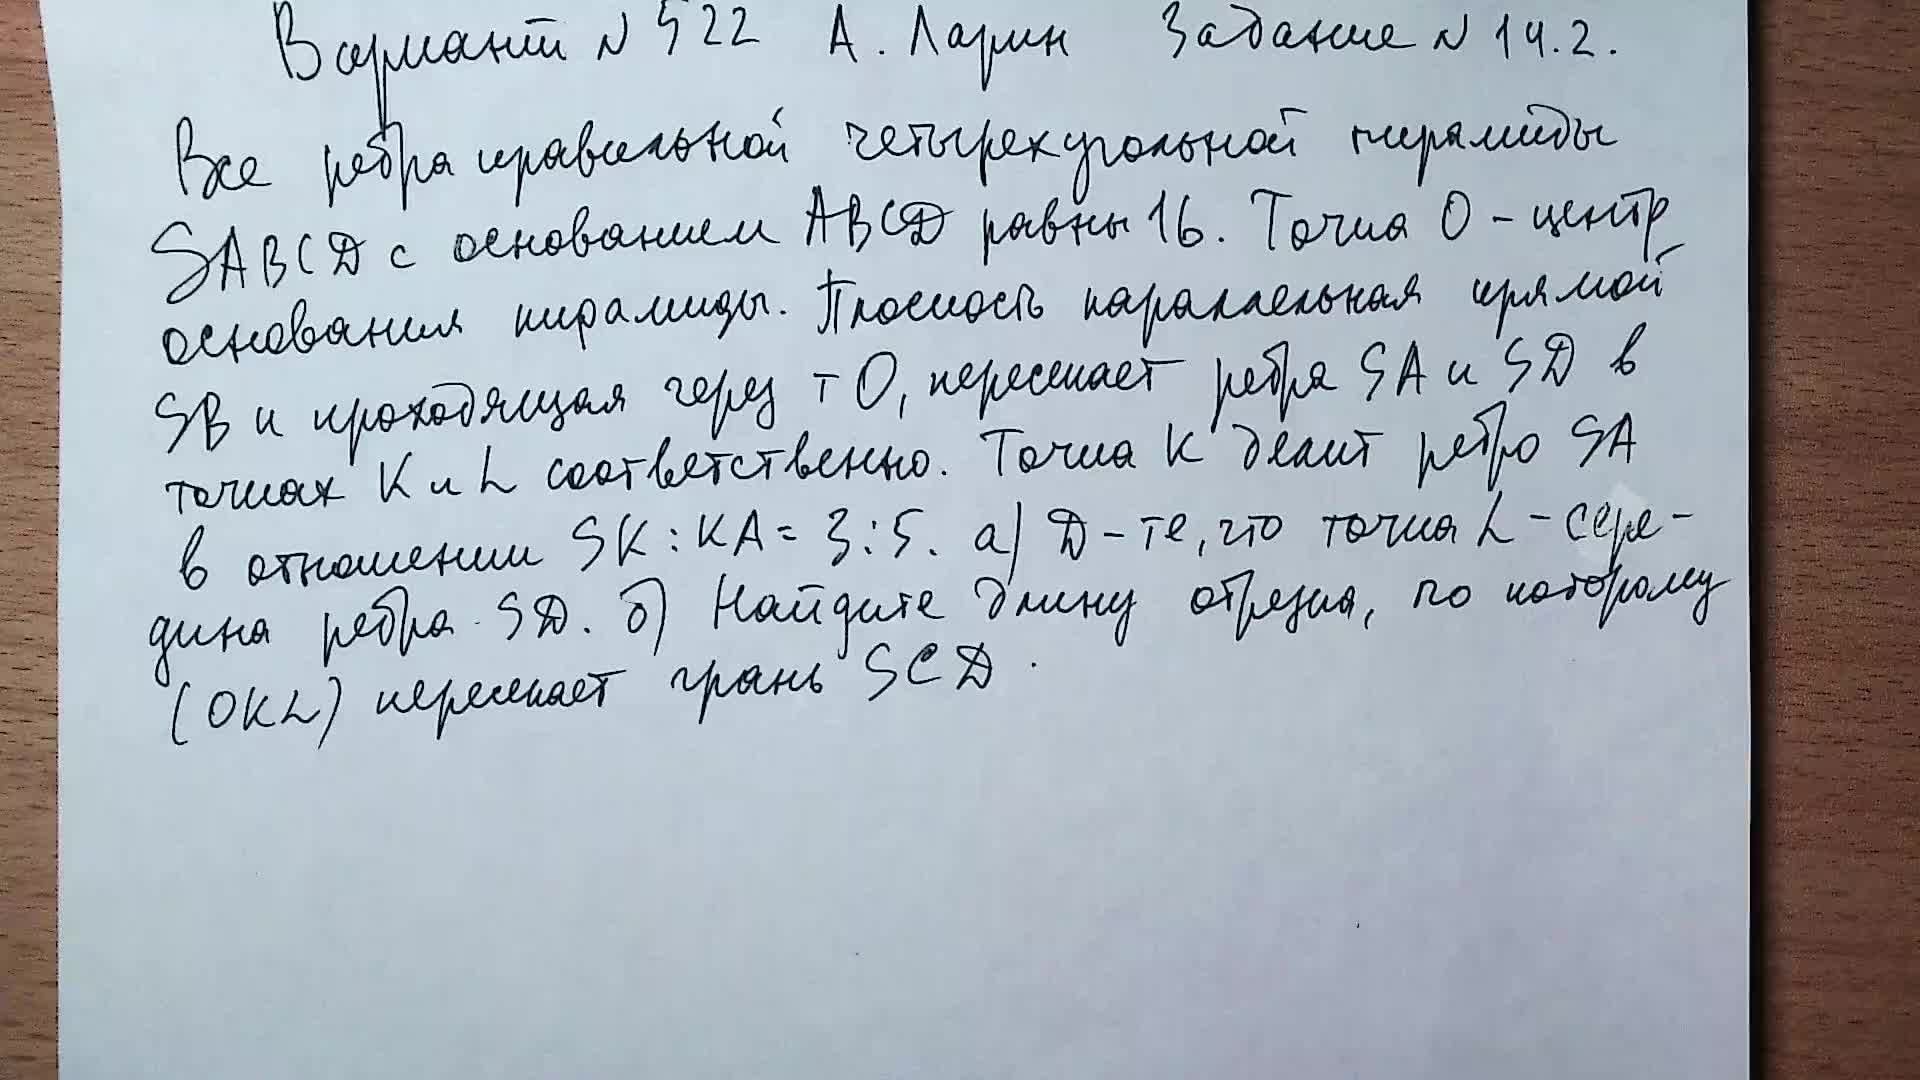 Вариант № 522 А. Ларин Задание № 14.2.
Все ребра правильной четырехугольной пирамиды
SABCD с основанием ABCD равны 16. Точка O - центр
основания пирамиды. Плоскость параллельная прямой
SB и проходящая через т O, пересекает ребра SA и SD в
точках K и L соответственно. Точка K делит ребро SA
в отношении SK:KA = 3:5. а) Д-те, что точка L - сере-
дина ребра SD. б) Найдите длину отрезка, по которому
(OKL) пересекает грань SCD.